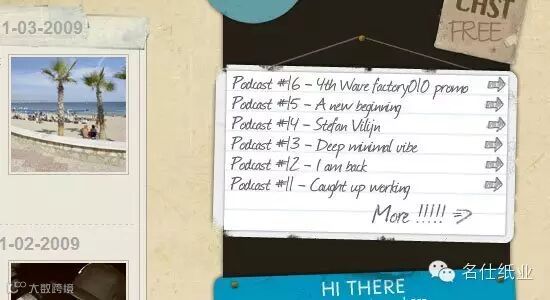 1-03-2009
CAST
FREE
Podcast #16 - 4th Wave factory010 promo
Podcast #15 - A new beginning
Podcast #14 - Stefan Vilijn
Podcast #13 - Deep minimal vibe
Podcast #12 - I am back
Podcast #11 - Caught up working
More !!!!!
1-02-2009
HI THERE
名仕纸业
大数跨境